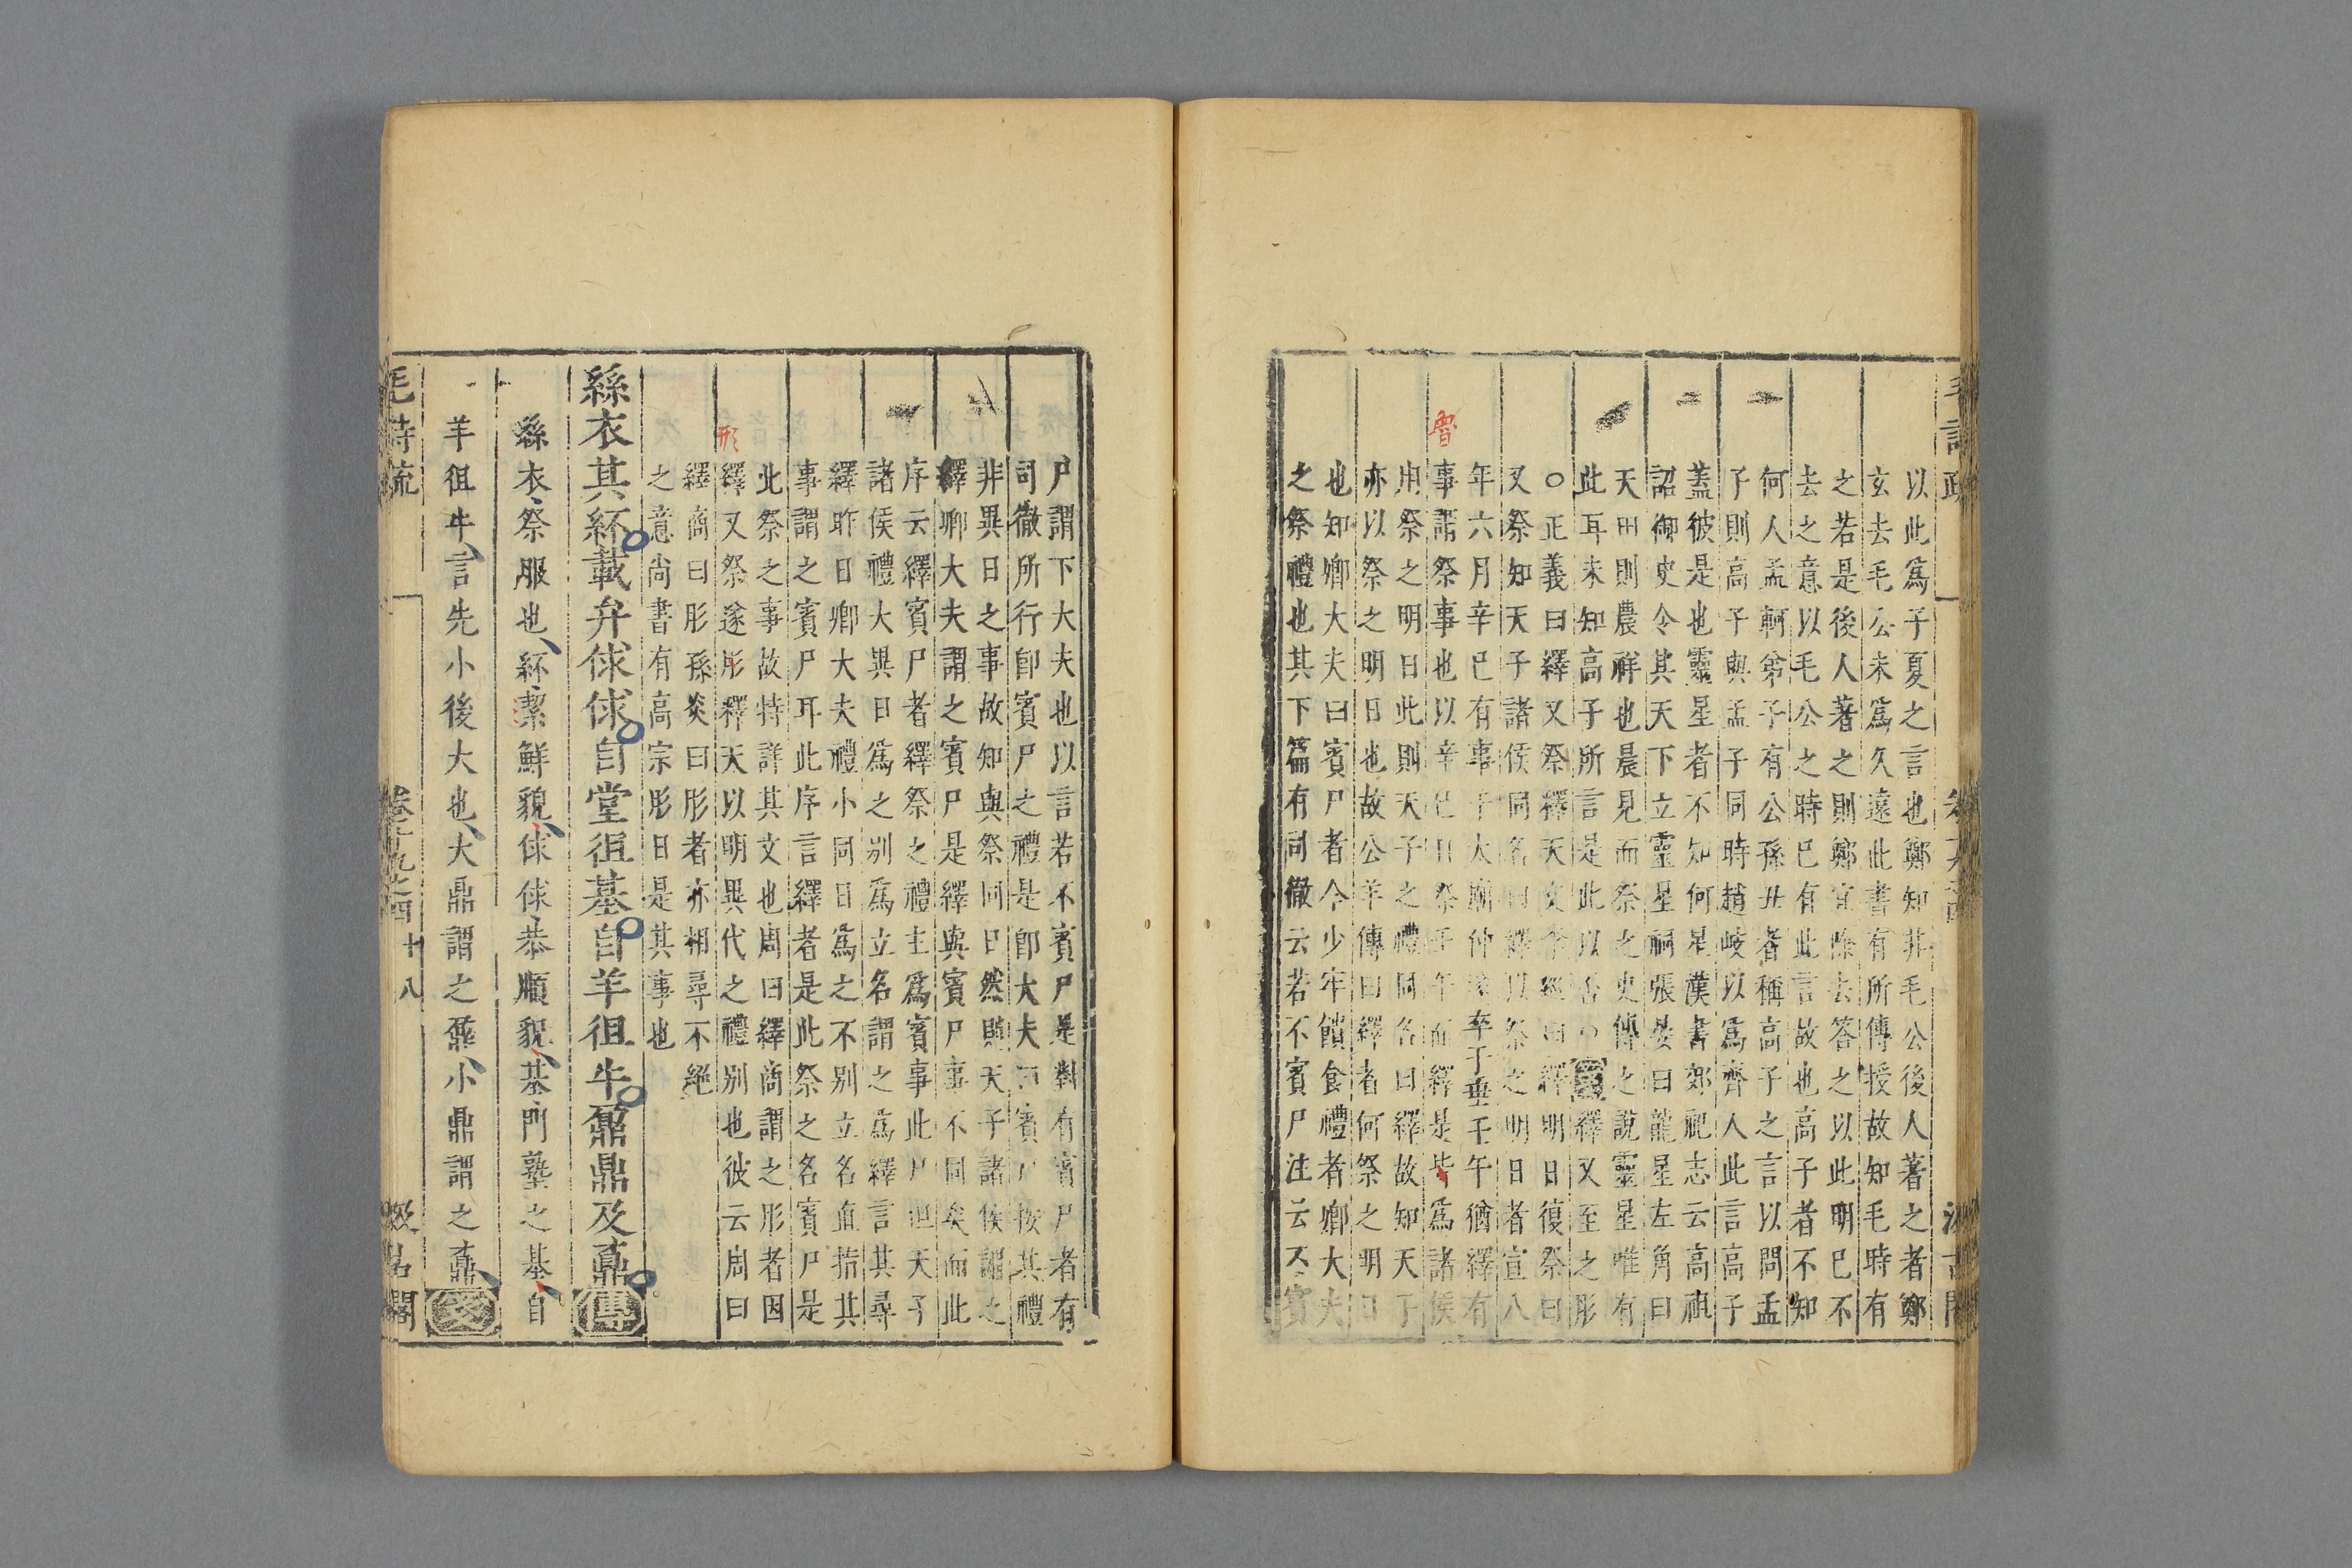 以此爲子夏之言也鄭知非毛公後人著之者鄭
玄去毛公未爲久遠此書有所傳授故知毛時有
之若是後人著之則鄭宜除去答之以此明已不
去之意以毛公之時已有此言故也高子者不知
何人孟軻弟子有公孫丑者稱高子之言以問孟
子則高子與孟子同時趙岐以爲齊人此言高子
蓋彼是也靈星者不知何星漢書郊祀志云高祖
詔御史令其天下立靈星祠張晏曰龍星左角曰
天田則農祥也晨見而祭之史傳之說靈星唯有
此耳未知高子所言是此以否○䟽繹又至之肜
○正義曰繹又祭釋天文李巡曰繹明日復祭曰
又祭知天子諸侯同名曰繹以祭之明日者宣八
年六月辛巳有事于大廟仲遂卒于垂壬午猶繹有
事謂祭事也以辛巳日祭壬午而繹是皆爲諸侯
魯
用祭之明日此則天子之禮同名曰繹故知天子
亦以祭之明日也故公羊傳曰繹者何祭之明日
也知卿大夫曰賓尸者今少牢饋食禮者卿大夫
之祭禮也其下篇有司徹云若不賓尸注云不賓
尸謂下大夫也以言若不賓尸是對有賓尸者有
司徹所行即賓尸之禮是即大夫曰賓尸按其禮
非異日之事故知與祭同日然則天子諸侯謂之
繹卿大夫謂之賓尸是繹與賓尸事不同矣而此
序云繹賓尸者繹祭之禮主爲賓事此尸但天子
諸侯禮大異日爲之别爲立名謂之爲繹言其尋
繹昨日卿大夫禮小同日爲之不别立名直指其
事謂之賓尸耳此序言繹者是此祭之名賓尸是
此祭之事故特詳其文也周曰繹商謂之肜者因
繹又祭遂肜釋天以明異代之禮别也彼云周曰
形
繹商曰肜孫炎曰肜者亦相尋不絕
之意尚書有高宗肜日是其事也
絲衣其紑載弁俅俅自堂徂基自羊徂牛鼐鼎及鼒傳
絲衣祭服也紑絜鮮貌俅俅恭順貌基門塾之基自
羊徂牛言先小後大也大鼎謂之鼐小鼎謂之鼒箋
毛詩疏 卷十九之四 十八 汲古閣